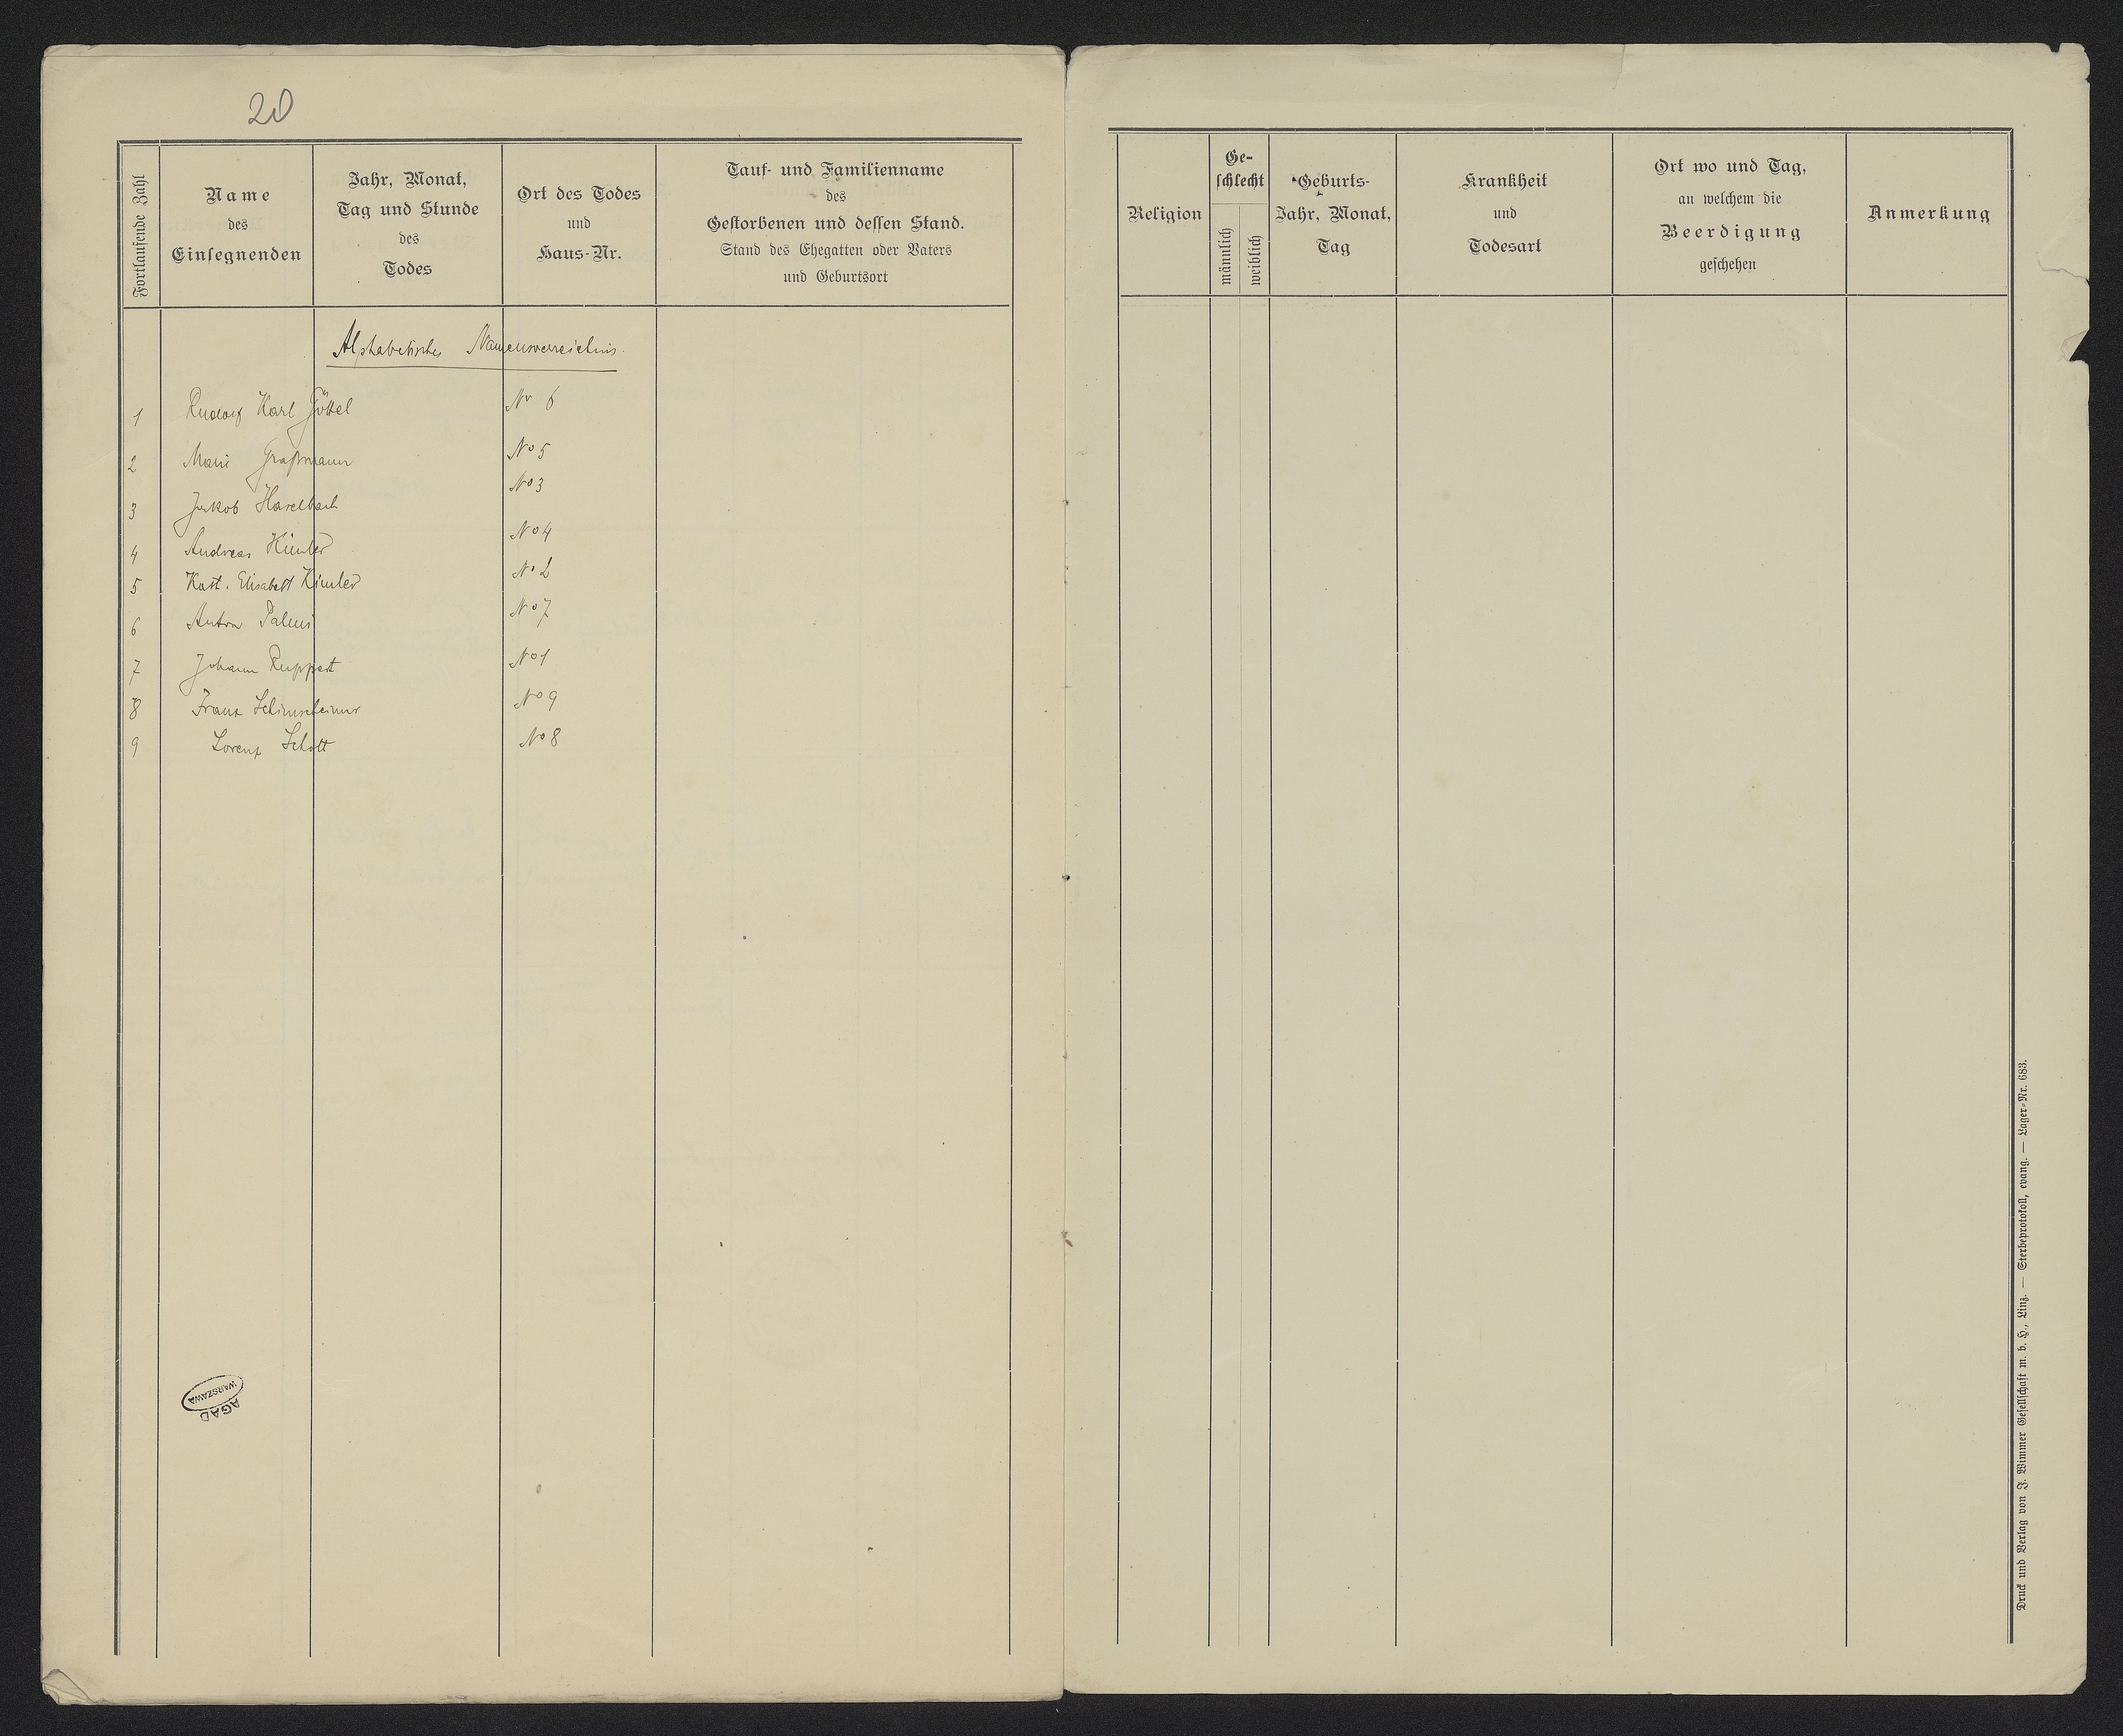 20
Fortlaufende Zahl
Name
des
Einsegnenden
Jahr, Monat,
Tag und Stunde
des
Todes
Ort des Todes
und
Haus-Nr.
Tauf- und Familienname
des
Gestorbenen und dessen Stand.
Stand des Ehegatten oder Vaters
und Geburtsort
Religion
Ge-
schlecht
männlich
weiblich
Geburts-
Jahr, Monat,
Tag
Krankheit
und
Todesart
Ort wo und Tag,
an welchem die
Beerdigung
geschehen
Anmerkung
Alphabetisches Namensverzeichnis.
1 Rudolf Karl No 6
2 Marie Graßmann No 5
3 Jakob Haselbach No 3
4 Andreas No 4
5 Kath. Elisabeth No 2
6 Anton No 7
7 Johann Ruppert No 1
8 Franz No 9
9 Lorenz Schott No 8
AGAD
WARSZAWA
Druck und Verlag von J. Wimmer Gesellschaft m. b. H., Linz. — Sterbeprotokoll, evang. — Lager-Nr. 683.